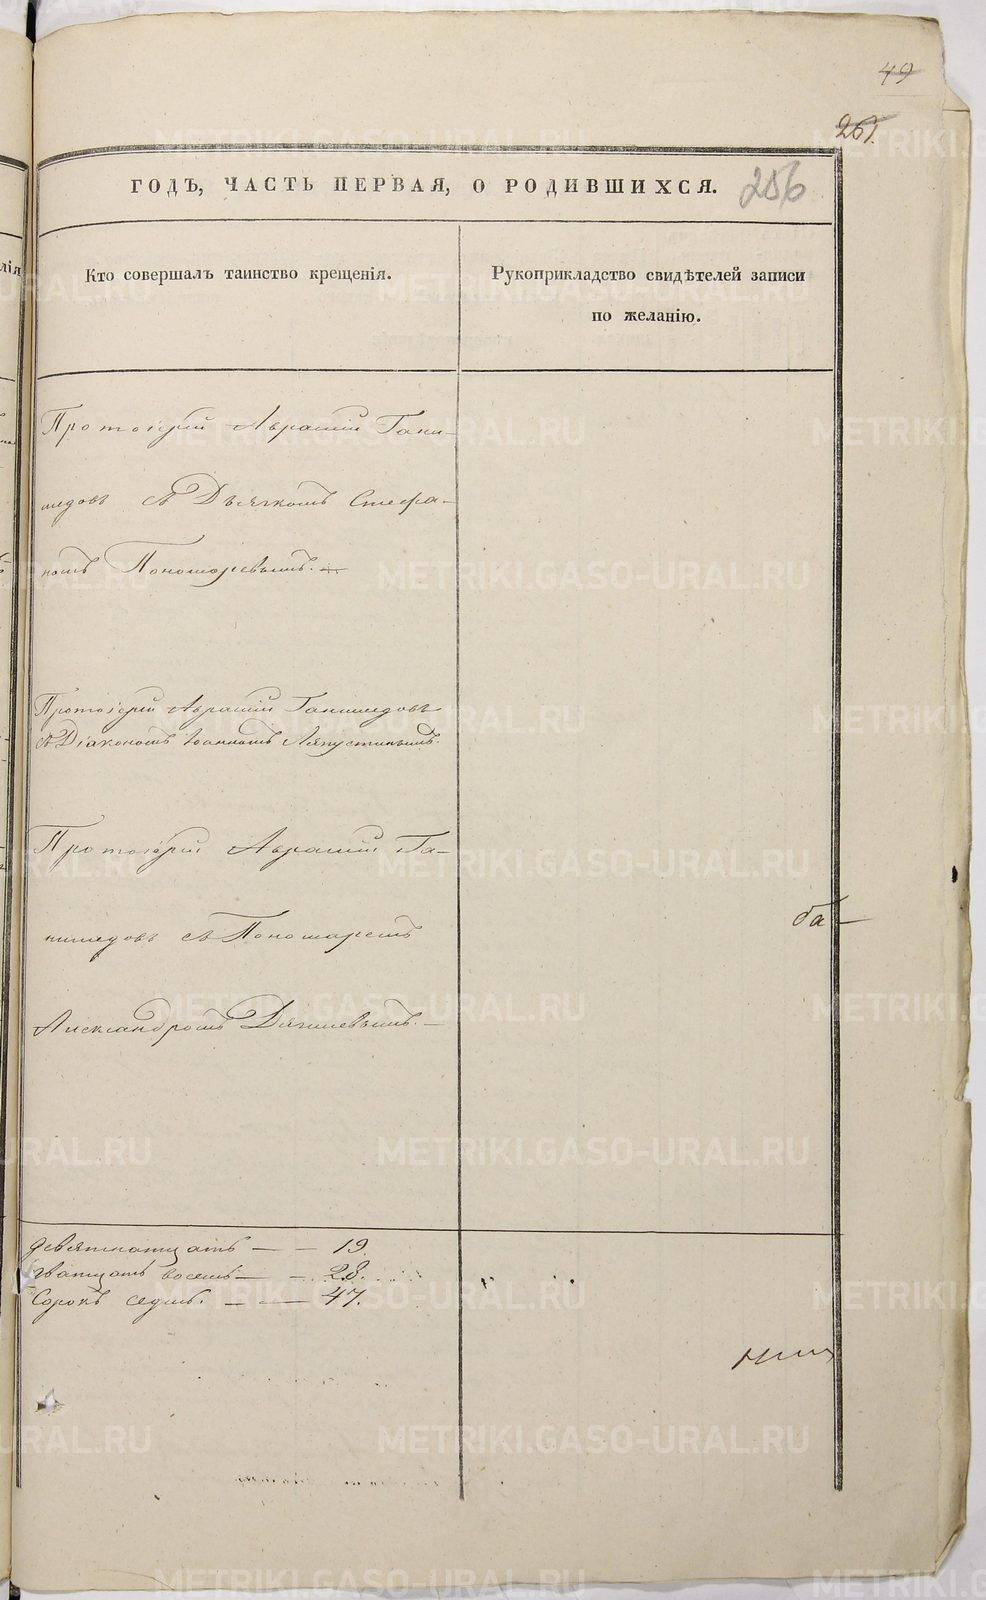 49
261.
ГОДЪ, ЧАСТЬ ПЕРВАЯ, О РОДИВШИХСЯ. 256
Кто совершалъ таинство крещенія.
Рукоприкладство свидѣтелей записи
по желанію.
Протоіерей Аврамій Гани-
медовъ съ Дьячкомъ Стефа-
номъ Пономаревымъ.
Протоіерей Аврамій Ганимедовъ
съ Діакономъ Іоанномъ Ляпустинымъ.
Протоіерей Аврамій Га-
нимедовъ съ Пономаремъ
ба-
Александромъ
девятнатцать — — 19.
дватцать восемь — — 28.
Сорокъ седмь. — — 47.
METRIKI.GASO-URAL.RU